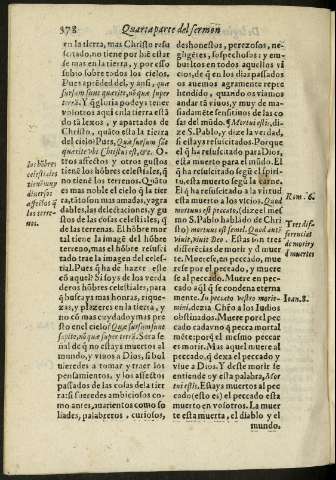 378 Quarta parte del sermon
en la tierra, mas Christo resu
scitado, no tiene por biē estar
se mas en la tierra, y por esso
subio sobre todos los cielos.
Pues aprēded del, y ansi, quæ
sursum sunt quærite, nō quæ super
terrā. Y q̄ gloria podeys tener
volotros aqui en la tierra está
do tā lexos, y apartados de
Christo, quāto està la tierra
del cielo? Pues, Quæ sursum sūt
quærite vbi Christus est, &c. O-
tros affectos y otros gustos
tiené los hōbres celestiales, q̄
no tienē los terrenos. Quāto
es mas noble el cielo q̄ la tier
ra, tāto son mas amadas, y agra
dables, las delectaciones, y gu
stos de las cosas celestiales, q̄
de las terrenas. El hōbre mor
tal tiene la imagē del hōbre
terreno, mas el hōbre resusci
tado trae la imagen del cele-
stial. Pues q̄ ha de hazer este
cō aquel? Si soys de los verda
deros hōbres celestiales, para
q̄ buscays mas honras, rique-
zas, y plazeres en la tierra, y
no cō mas cuydado y mas pre
sto en el cielo? Quæ sursum sunt
sapite, nō quæ super terrā. Sera se
ñal de q̄ no estays muertos al
mundo, y viuos a Dios, si bol
uieredes a tomar y traer los
pensamientos, y los affectos
passados de las cosas de la tier
ra: si fueredes ambiciosos co-
mo antes, marientos como so
liades, palabreros, curiosos,
los hōbres
celestiales
tienē muy
diuersos
affectos q̄
los terre-
nos.
deshonestos, perezosos, ne-
gligētes, sospechosos: y em-
bueltos en todos aquellos vi
cios, de q̄ en los dias passados
os auemos agramente repre
hendido, quando os viamos
andar tā viuos, y muy de ma-
siadamēte sensitiuos de las co
sas del mūdo. q̄ Mortui estis, di-
ze S. Pablo, y dize la verdad,
si estays resuscitados. Porque
el q̄ ha resuscitado para Dios,
esta muerto para el mūdo. El
q̄ ha resuscitado segū el spiri-
tu, esta muerto segū la carne.
El q̄ ha resuscitado a la virtud
esta muerto a los vicios. Quod
mortuus est peccato, (dize el mes
mo S. Pablo hablādo de Chri
sto) mortuus est semel. Quod autē
viuit, viuit Deo. Estas son tres
differēcias de morir y d̄ muer
te. Muerese, en peccado, mue
rese por el peccado, y muere
se al peccado. Muere en pec-
cado aql̄ q̄ se condena eterna
mente. In peccato vestro morie-
mini, dezia Chřo a los Iudios
obstinados. Muere por el pec
cado cada vno q̄ pecca mortal
mēte: porque el mismo peccar
es morir. Mas aquel muere al
peccado. q̄ dexa el peccado y
viue a Dios. Y deste morir se
entiende oy esta palabra, Mor
tui estis. Estays muertos al pec
cado (esto es) el peccado esta
muerto en vosotros. La muer
te esta muerta, el diablo y el
mundo.
Rom. 6.
Tres dif-
ferencias
de morir y
d̄ muertes
Ioan. 8.